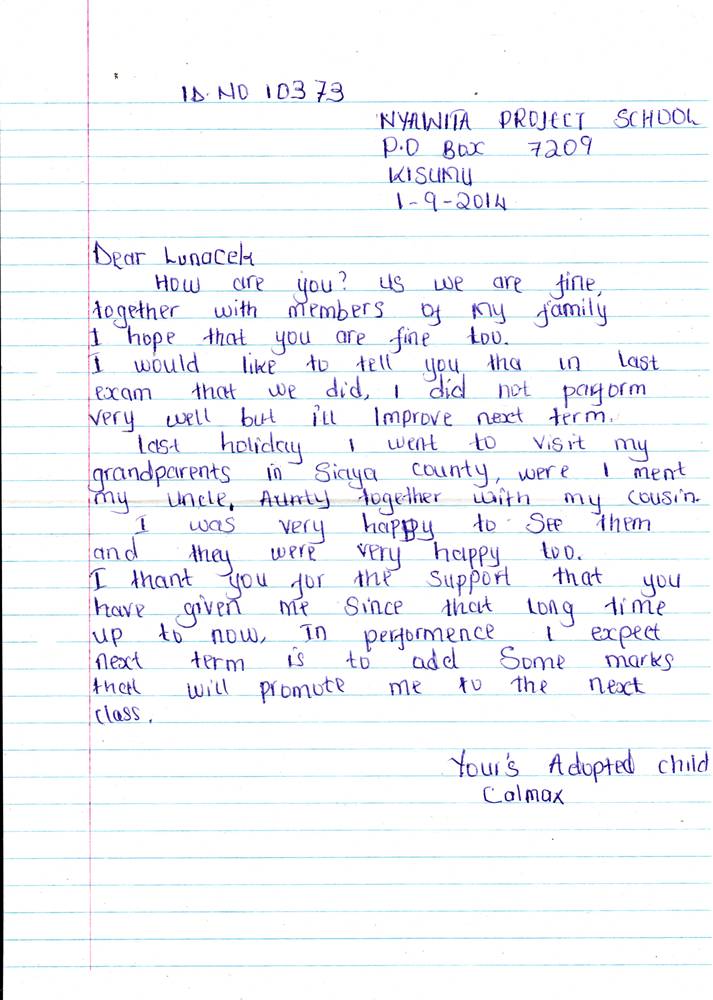 ID. NO 10373
NYAWITA PROJECT SCHOOL
P.O BOX 7209
KISUMU
1-9-2014
Dear Lunacek
How are you? us we are fine,
together with members of my family
I hope that you are fine too.
I would like to tell you tha in last
exam that we did, I did not parform
very well but i'll Improve next term.
last holiday I went to visit my
grandparents in Siaya county, were I ment
my uncle, Aunty together with my cousin.
I was very happy to see them
and they were very happy too.
I thant you for the support that you
have given me since that long time
up to now, In performence I expect
next term is to add Some marks
that will promote me to the next
class.
Your's Adopted child
Calmax